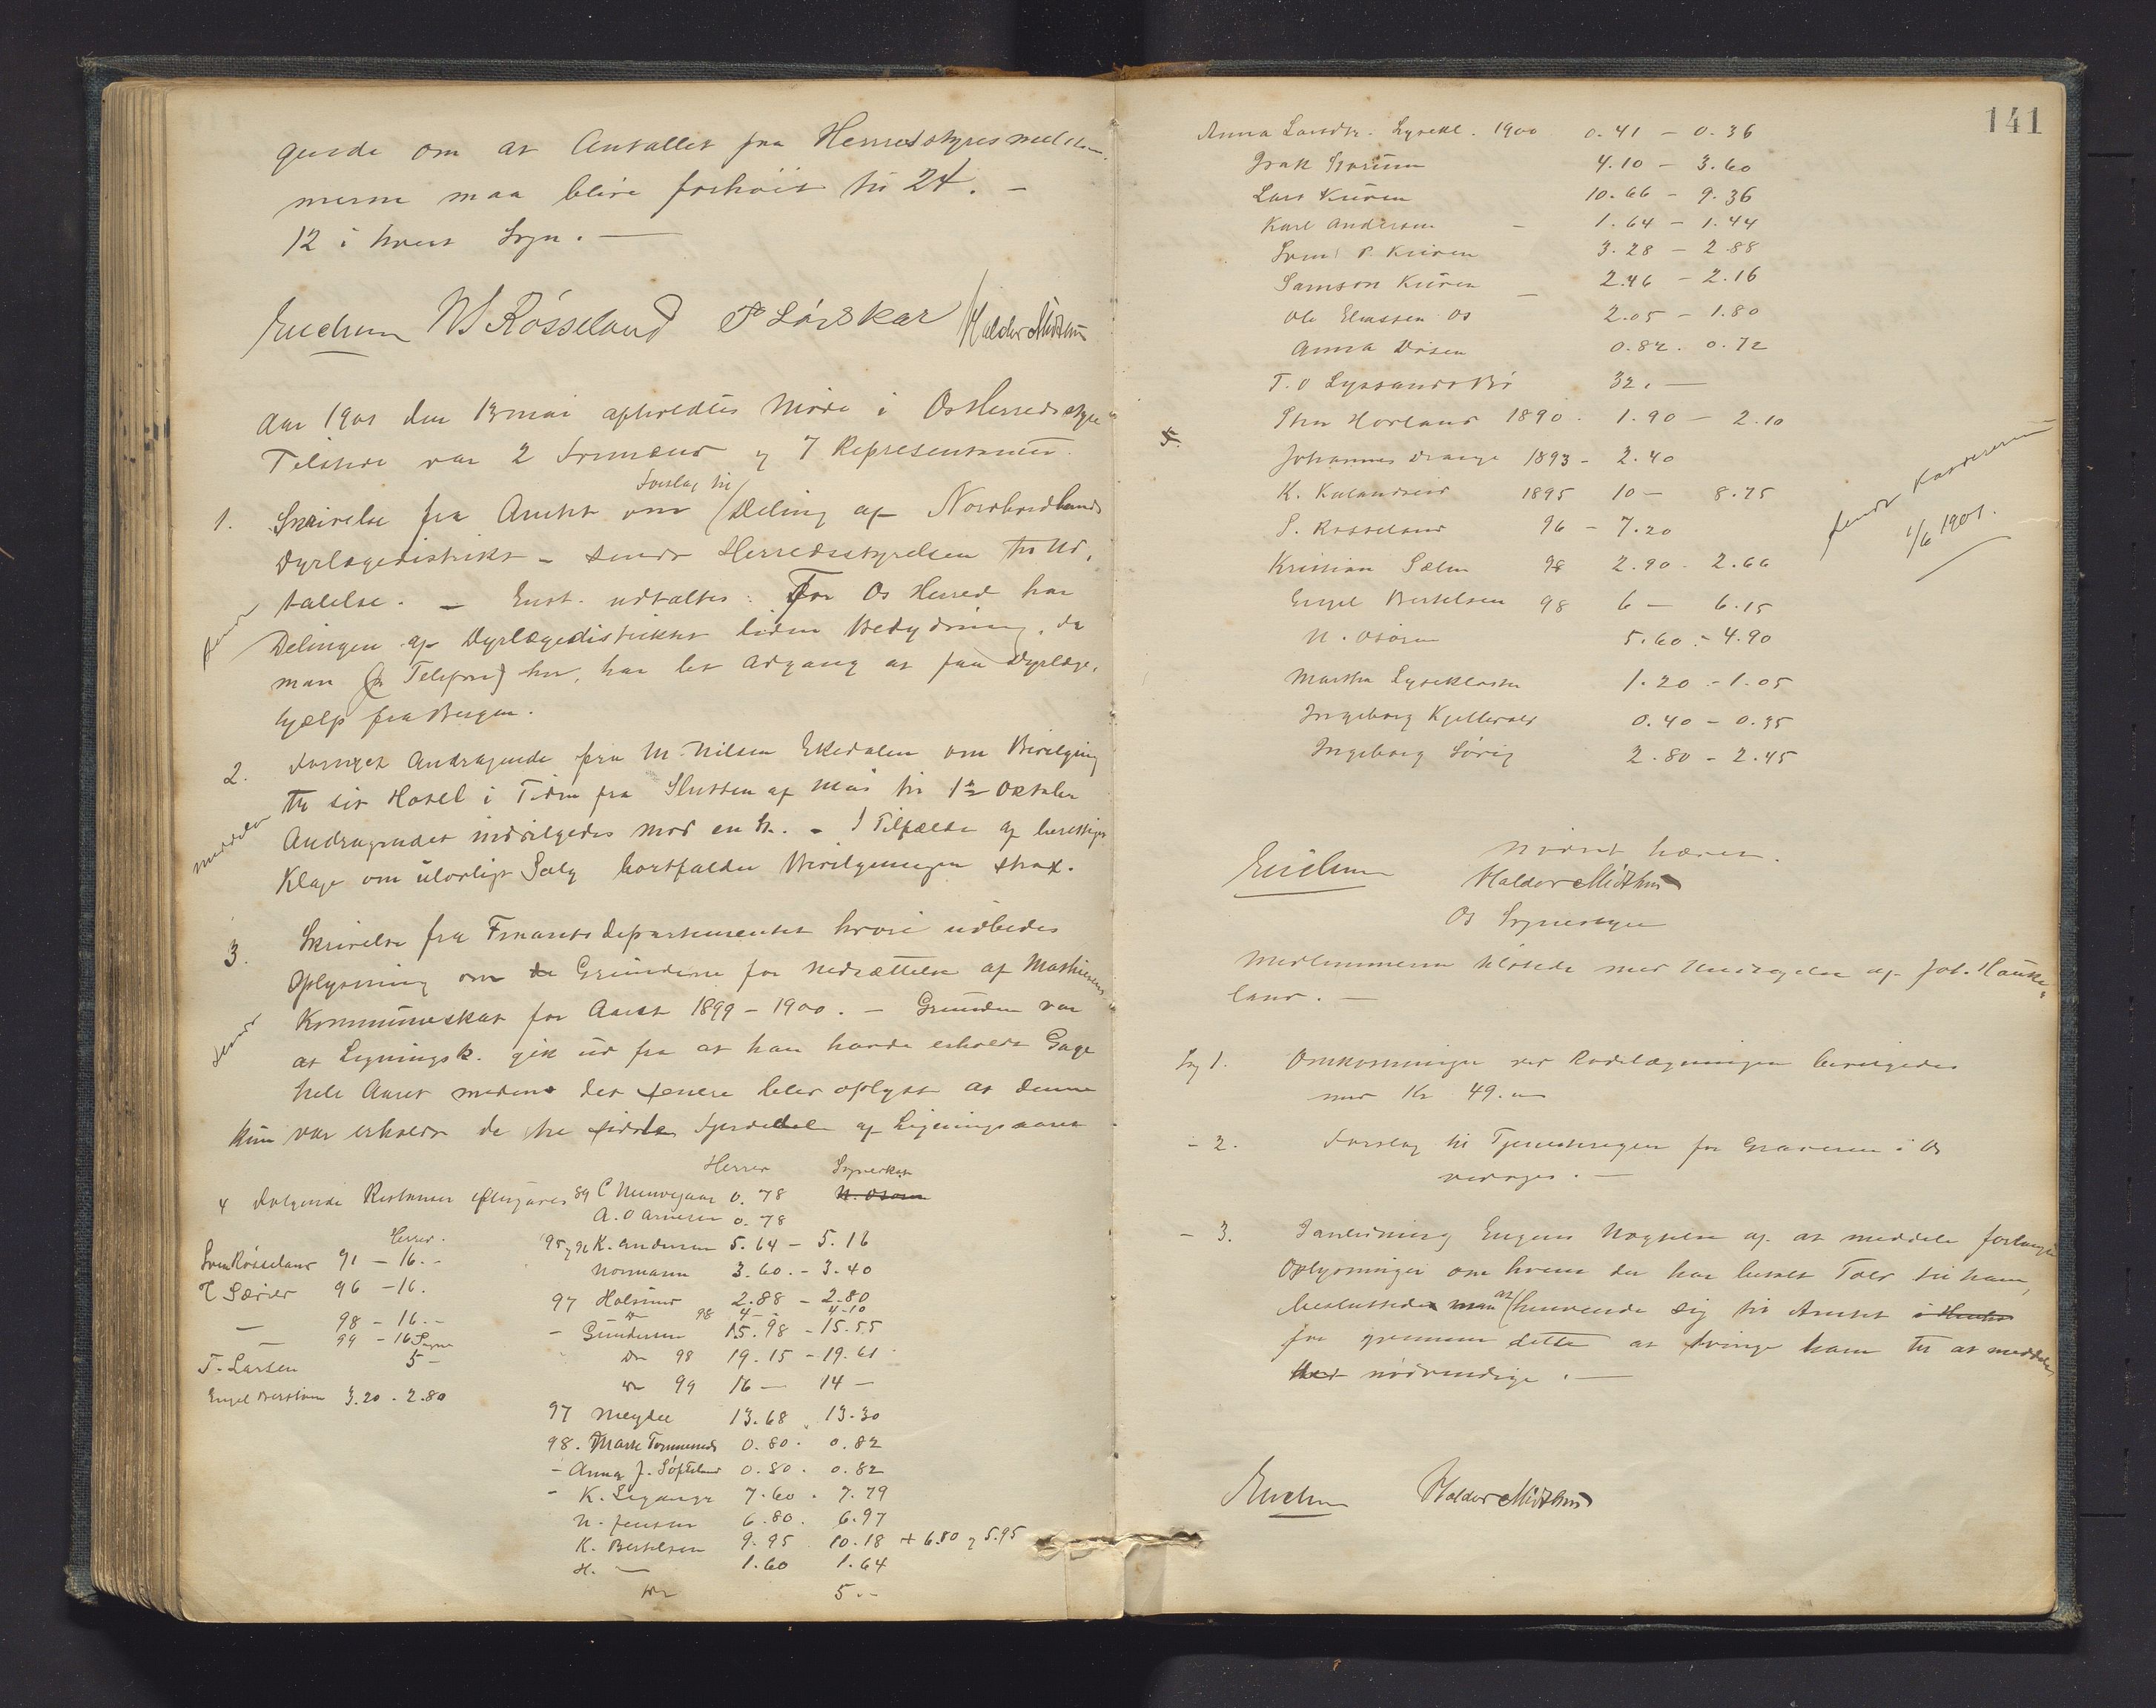 gende om at Antallet fra Herredsstyresmedlem-
merne maa blive forhöiet til 24. –
12 i hvert Sogn. —
N S Rösseland P Lörskar Haldor Midthus
Aar 1901 den 13 mai afholdtes Möde i Os Herredsstyre
Tilstede var 2 Formænd og 7 Representanter.
Forslag til
1. Skrivelse fra Amtet om Deling af Nordhordlands
Dyrlægedistrikt – sendt Herredsstyrelsen til Ud-
talelse. – Enst. udtaltes: For Os Herred har
Delingen af Dyrlægedistriktet liden Betydning, da
man (pr Telefon) her, har let Adgang at faa Dyrlæge-
hjælp fra Bergen.
sendt
2. Fornyet Andragende fra M. Nilsen Ekedalen om Bevilgning
til sit Hotel i Tiden fra Slutten af Mai til 1ste Oktober
Andragendet indvilgedes mod en St. – I Tilfælde af berettiget
Klage om ulovligt Salg bortfalder Bevilgningen strax.
meddelt
3. Skrivelse fra Finantsdepartementet hvori udbedes
Oplysning om Grundene for Nedsættelse af Mathiesens
Kommuneskat for Aaret 1899 – 1900. – Grunden var
at Ligningsk. gik ud fra at han havde erholdt Gage
hele Aaret medens det senere blev oplyst at denne
kun var erholdt de tre sidste Fjerdedele af Ligningsaaret
sendt
Herred Sogneskat
4 Følgende Restanser eftergives 89 C Neuvejaar 0.78 N. Osören
A. O Arnesen 0.78
Herred.
Sven Rösseland 91 – 16. –
95 og 96 K. Andersen 5.64 – 5.16
Normann 3.60. – 3.40
T Særver 96 – 16.
97 Holmund 2.88 – 2.80
Do 98 4 – 4.10
— 98 – 16. –
– Gundersen 15.98 – 15.55
— 99 – 16 Sogne
Do 98 19.15 – 19.61
T. Larsen 5 –
Do 99 16 — 14 —
Engel Bertelsen 3.20 . 2.80
97 Meydell 13.68 13.30
98. Marte Tommesds 0.80. 0.82
– Anna J. Söfteland 0.80. 0.82
– K. Legange 7.60 . 7.79
N. Jensen 6.80. 6.97
K. Bertelsen 9.95 10.18 + 6.80 og 5.95
H. — 1.60 1.64
Do 5. –
141
Anna Larsdtr. Lysekl. 1900 0.41 – 0.36
Isak Hörum 4.10 – 3.60
Lars Kuven 10.66 – 9.36
Karl Andersen – 1.64 – 1.44
Sven P. Kuven 3.28 – 2.88
Samson Kuven – 2.46 – 2.16
Ole Eliassen Os 2.05 – 1.80
Anna Dösen 0.82. 0.72
T. O Lyssands Bö 32. —
5. Sten Hovland 1890. 1.90 – 2.10
Johannes Drange 1893 – 2.40
K. Kulandseid 1895 10 – 8.75
S. Rosseland 96 – 7.20
Kristian Sælen 98 2.90. 2.66
Engel Bertelsen 98 6 — 6.15
N. Osören 5.60 – 4.90
Martha Lysekloster 1.20 – 1.05
Ingeborg Kjellevold 0.40 – 0.35
Ingeborg Sörig 2.80 – 2.45
sendt Kassereren
1/6 1901.
Mödet hævet.
Haldor Midthus
Os Sognestyre
Medlemmerne tilstede med Undtagelse af Joh. Hauke-
land. —
Sag 1. Omkostninger ved Rodelægningen bevilgedes
med Kr 49.00
– 2. Forslag til Tjenesteregler for Graveren i Os
vedtoges. —
– 3. I Anledning Engens Vægrelse af at meddele forlangte
Oplysninger om hvem der har betalt Told til ham,
besluttedes man at henvende sig til Amtet
for gjennem dette at tvinge ham til at meddele
det nödvendige. —
Haldor Midthus